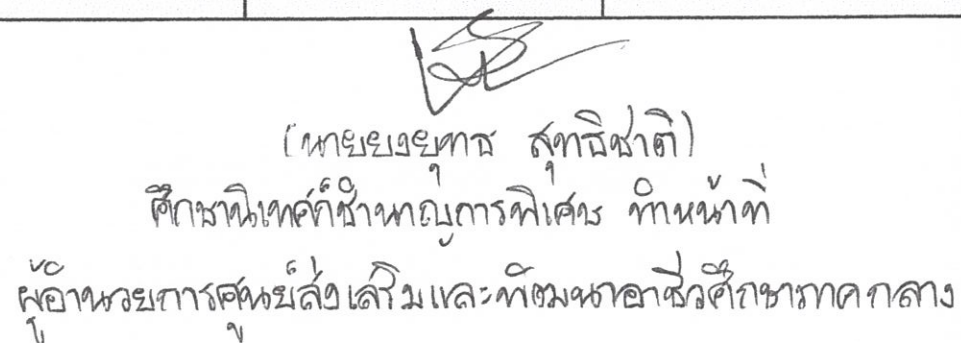 (นายยงยุทธ สุทธิชาติ)
ศึกษานิเทศก์ชำนาญการพิเศษ ทำหน้าที่
ผู้อำนวยการศูนย์ส่งเสริมและพัฒนาอาชีวศึกษาภาคกลาง